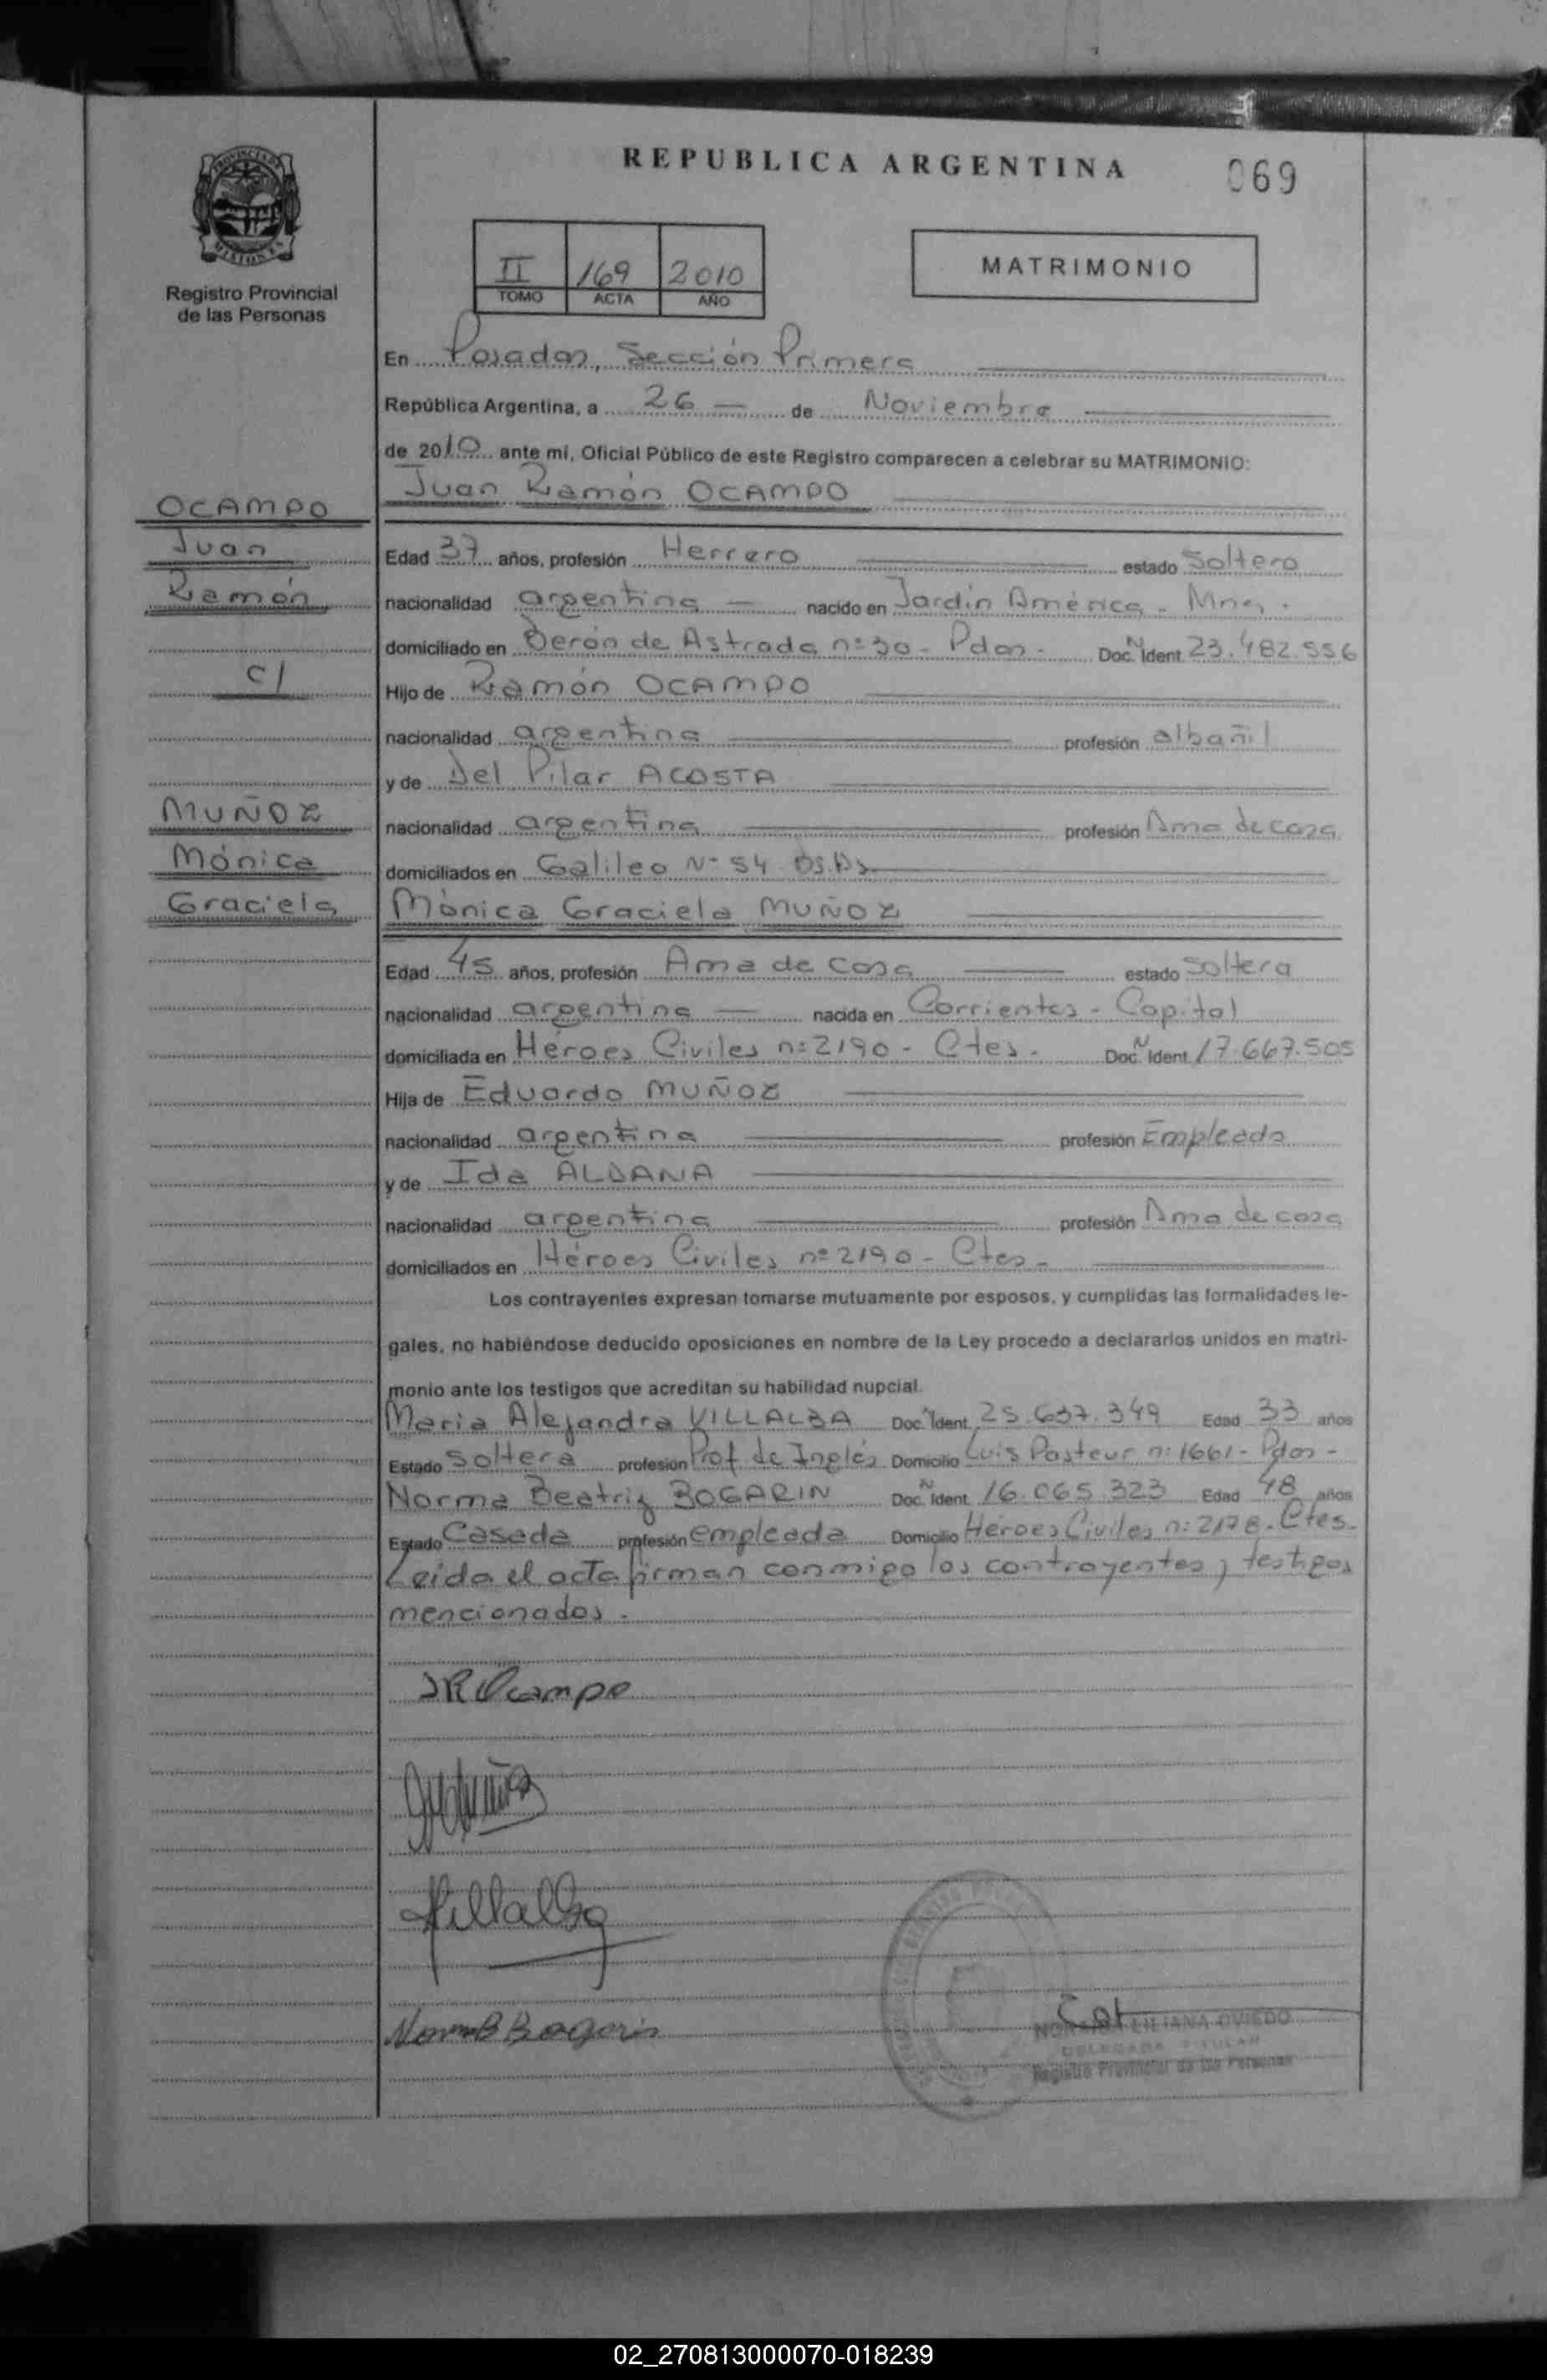 REPUBLICA ARGENTINA
069
PROVINCIA DE
MISIONES
Registro Provincial
de las Personas
II 169 2010
TOMO ACTA AÑO
MATRIMONIO
En Posadas, Sección Primera
República Argentina, a 26 — de Noviembre
de 2010 ante mi, Oficial Público de este Registro comparecen a celebrar su MATRIMONIO:
Juan Ramón OCAMPO
OCAMPO
Juan
Ramón
c/
MUÑOZ
Mónica
Graciela
Edad 37 años, profesión Herrero estado Soltero
nacionalidad argentina — nacido en Jardín América - Mnes.
domiciliado en Berón de Astrada nº 30 - Pdas - Doc. N Ident. 23.482.556
Hijo de Ramón OCAMPO
nacionalidad argentina profesión albañil
y de Del Pilar ACOSTA
nacionalidad argentina profesión Ama de casa
domiciliados en Galileo Nº 54 Bs.As
Mónica Graciela MUÑOZ
Edad 45 años, profesión Ama de casa estado Soltera
nacionalidad argentina — nacida en Corrientes - Capital
domiciliada en Héroes Civiles nº 2190 - Ctes - Doc. N Ident. 17.667.505
Hija de Eduardo MUÑOZ
nacionalidad argentina profesión Empleado
y de Ida ALDANA
nacionalidad argentina profesión Ama de casa
domiciliados en Héroes Civiles nº 2190 - Ctes -
Los contrayentes expresan tomarse mutuamente por esposos, y cumplidas las formalidades le-
gales, no habiéndose deducido oposiciones en nombre de la Ley procedo a declararlos unidos en matri-
monio ante los testigos que acreditan su habilidad nupcial.
Maria Alejandra VILLALBA Doc. N Ident. 25.637.349 Edad 33 años
Estado Soltera profesión Prof de Inglés Domicilio Luis Pasteur nº 1661 - Pdas -
Norma Beatriz BOGARIN Doc. N Ident. 16.065.323 Edad 48 años
Estado Casada profesión empleada Domicilio Héroes Civiles nº 2178 - Ctes -
Leída el acta firman conmigo los contrayentes y testigos
mencionados.
JROcampo
Villalba
NormaB Bogarin
LILIANA OVIEDO
DELEGADA TITULAR
Registro Provincial de las Personas
02_270813000070-018239